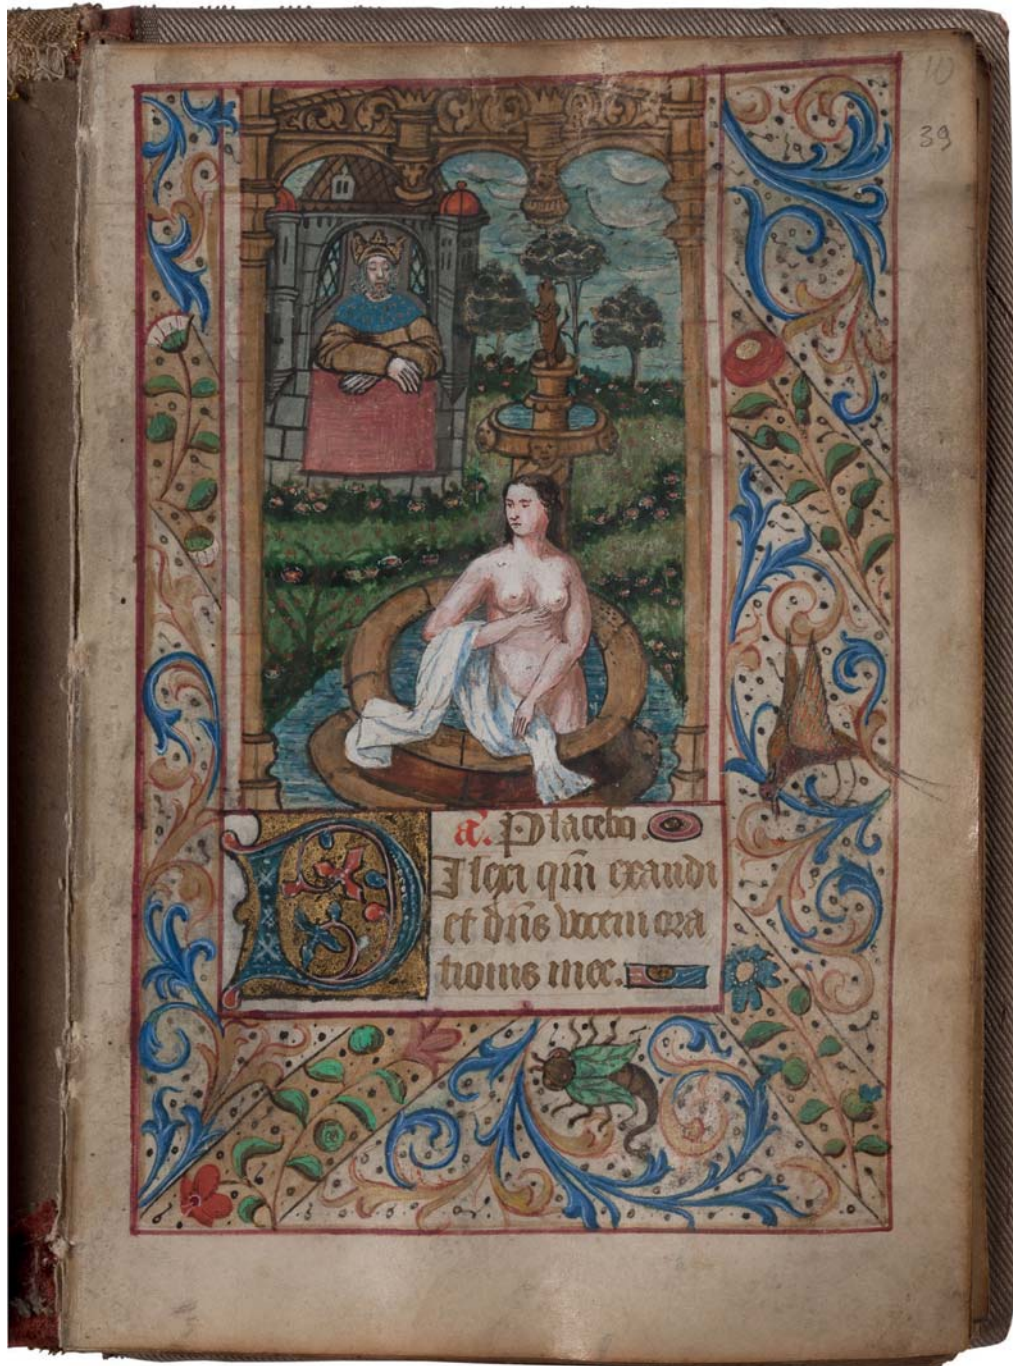 10
39
a. Placebo.
Dilexi qm̄ exaudi
et dn̄s vocem ora
tionis mee.